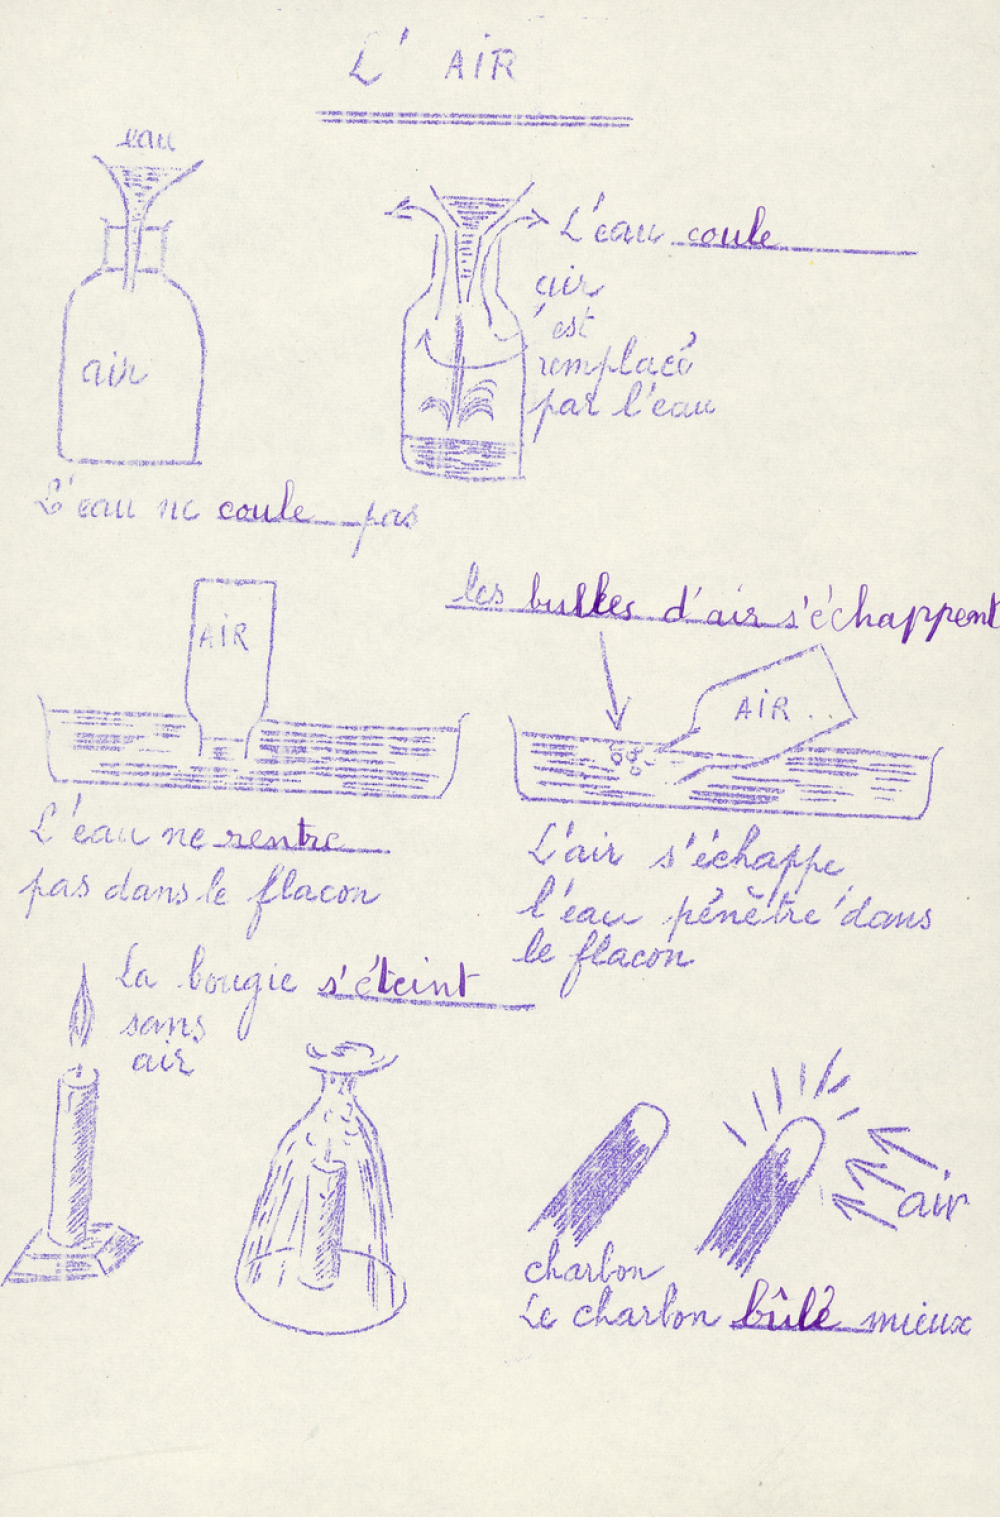 L' AIR
eau
air
L'eau coule
air
est
remplacé
par l'eau
L'eau ne coule pas
AIR
les bulles d'air s'échappent
AIR
L'eau ne rentre
pas dans le flacon
L'air s'échappe,
l'eau pénètre dans
le flacon
La bougie s'éteint
sans
air
air
charbon
Le charbon bûlé mieux